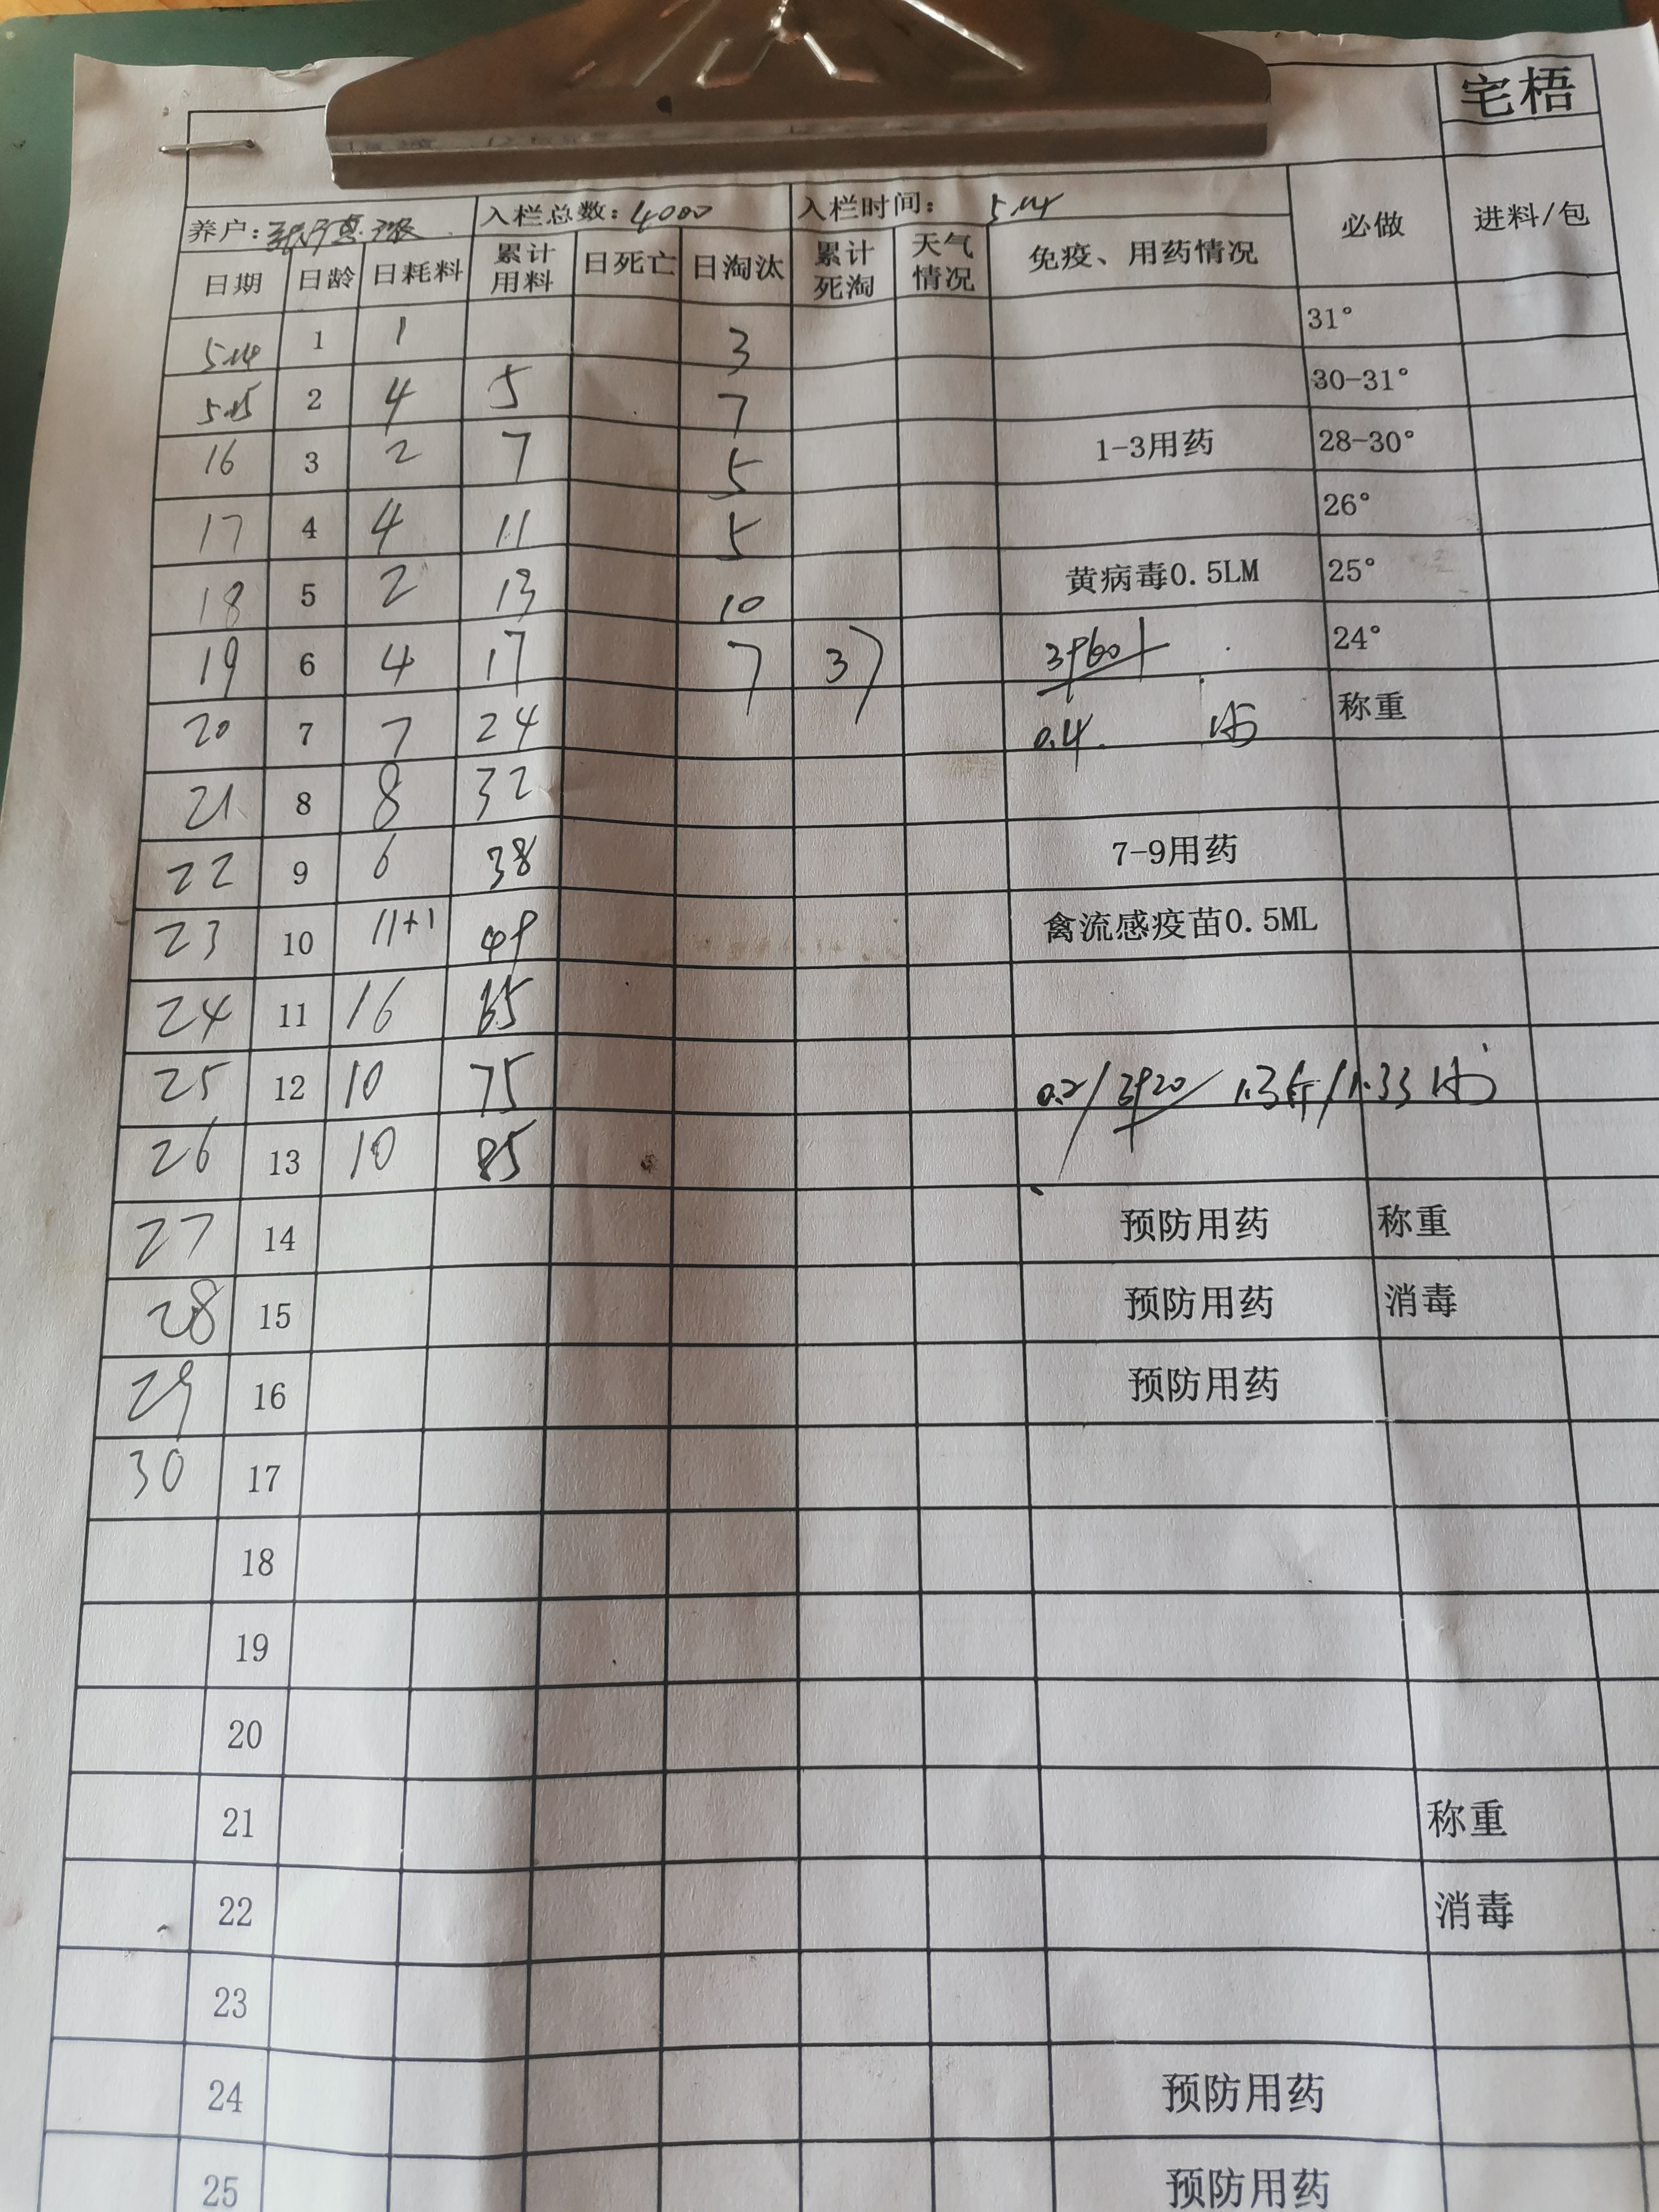 宅梧
养户: 入栏总数: 4000 入栏时间: 5.14 必做 进料/包
日期 日龄 日耗料 累计用料 日死亡 日淘汰 累计死淘 天气情况 免疫、用药情况
5.14 1 1 3 31°
5.15 2 4 5 7 30-31°
16 3 2 7 5 1-3用药 28-30°
17 4 4 11 5 26°
18 5 2 13 10 黄病毒0.5LM 25°
19 6 4 17 7 37 3960 24°
20 7 7 24 0.4 称重
21 8 8 32
22 9 6 38 7-9用药
23 10 11+1 49 禽流感疫苗0.5ML
24 11 16 65
25 12 10 75 0.2/3920 1.3斤/1.33
26 13 10 85
27 14 预防用药 称重
28 15 预防用药 消毒
29 16 预防用药
30 17
18
19
20
21 称重
22 消毒
23
24 预防用药
25 预防用药